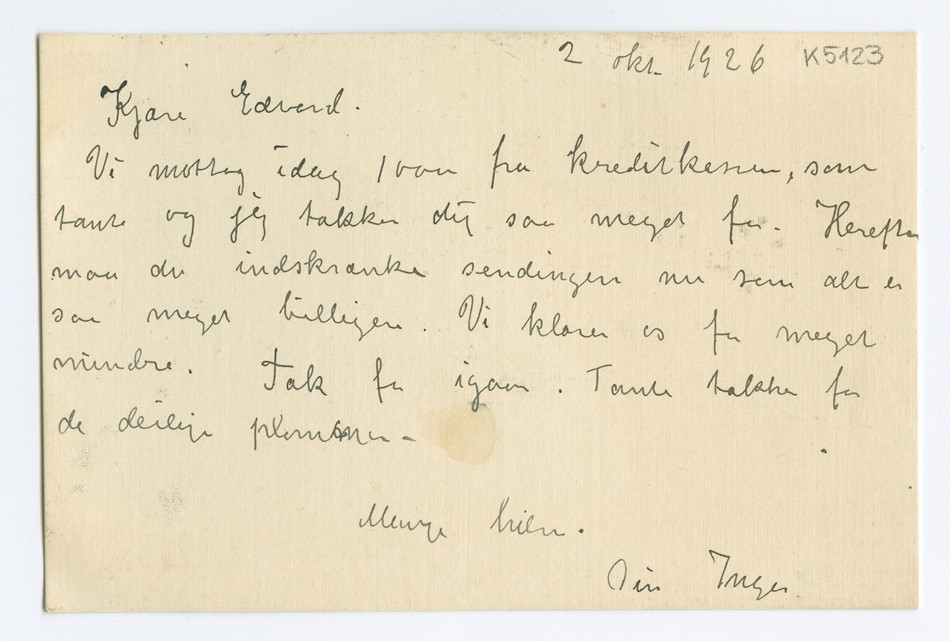 2 okt. 1926 K5123
Kjære Edvard.
Vi mottog idag 1000 fra kreditkassen, som
tante og jeg takker dig saa meget for. Herefter
maa du indskrænke sendingen nu som alt er
saa meget billigere. Vi klarer os for meget
mindre. Tak for igaar. Tante takker for
de deilige plommer –
Mange hilsn.
Din Inger